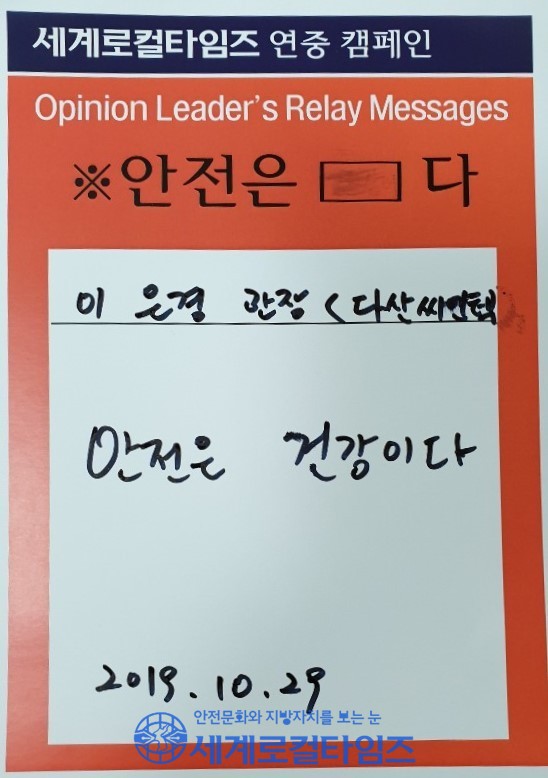 세계로컬타임즈 연중 캠페인
Opinion Leader's Relay Messages
※안전은 다
이 은경 관장 <다산씨앤텍
안전은 건강이다
2019.10.29
안전문화와 지방자치를 보는 눈
세계로컬타임즈